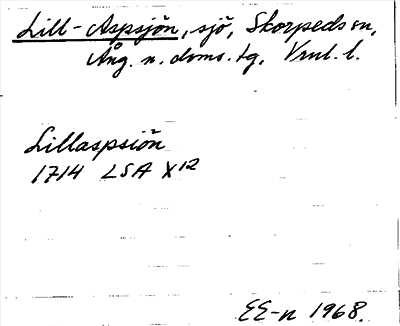 Lill-Aspsjön, sjö, Skorpeds sn,
Ång. n. doms. tg, Vrml. l.
Lillaspsiön
1714 LSA X12
EE-n 1968.